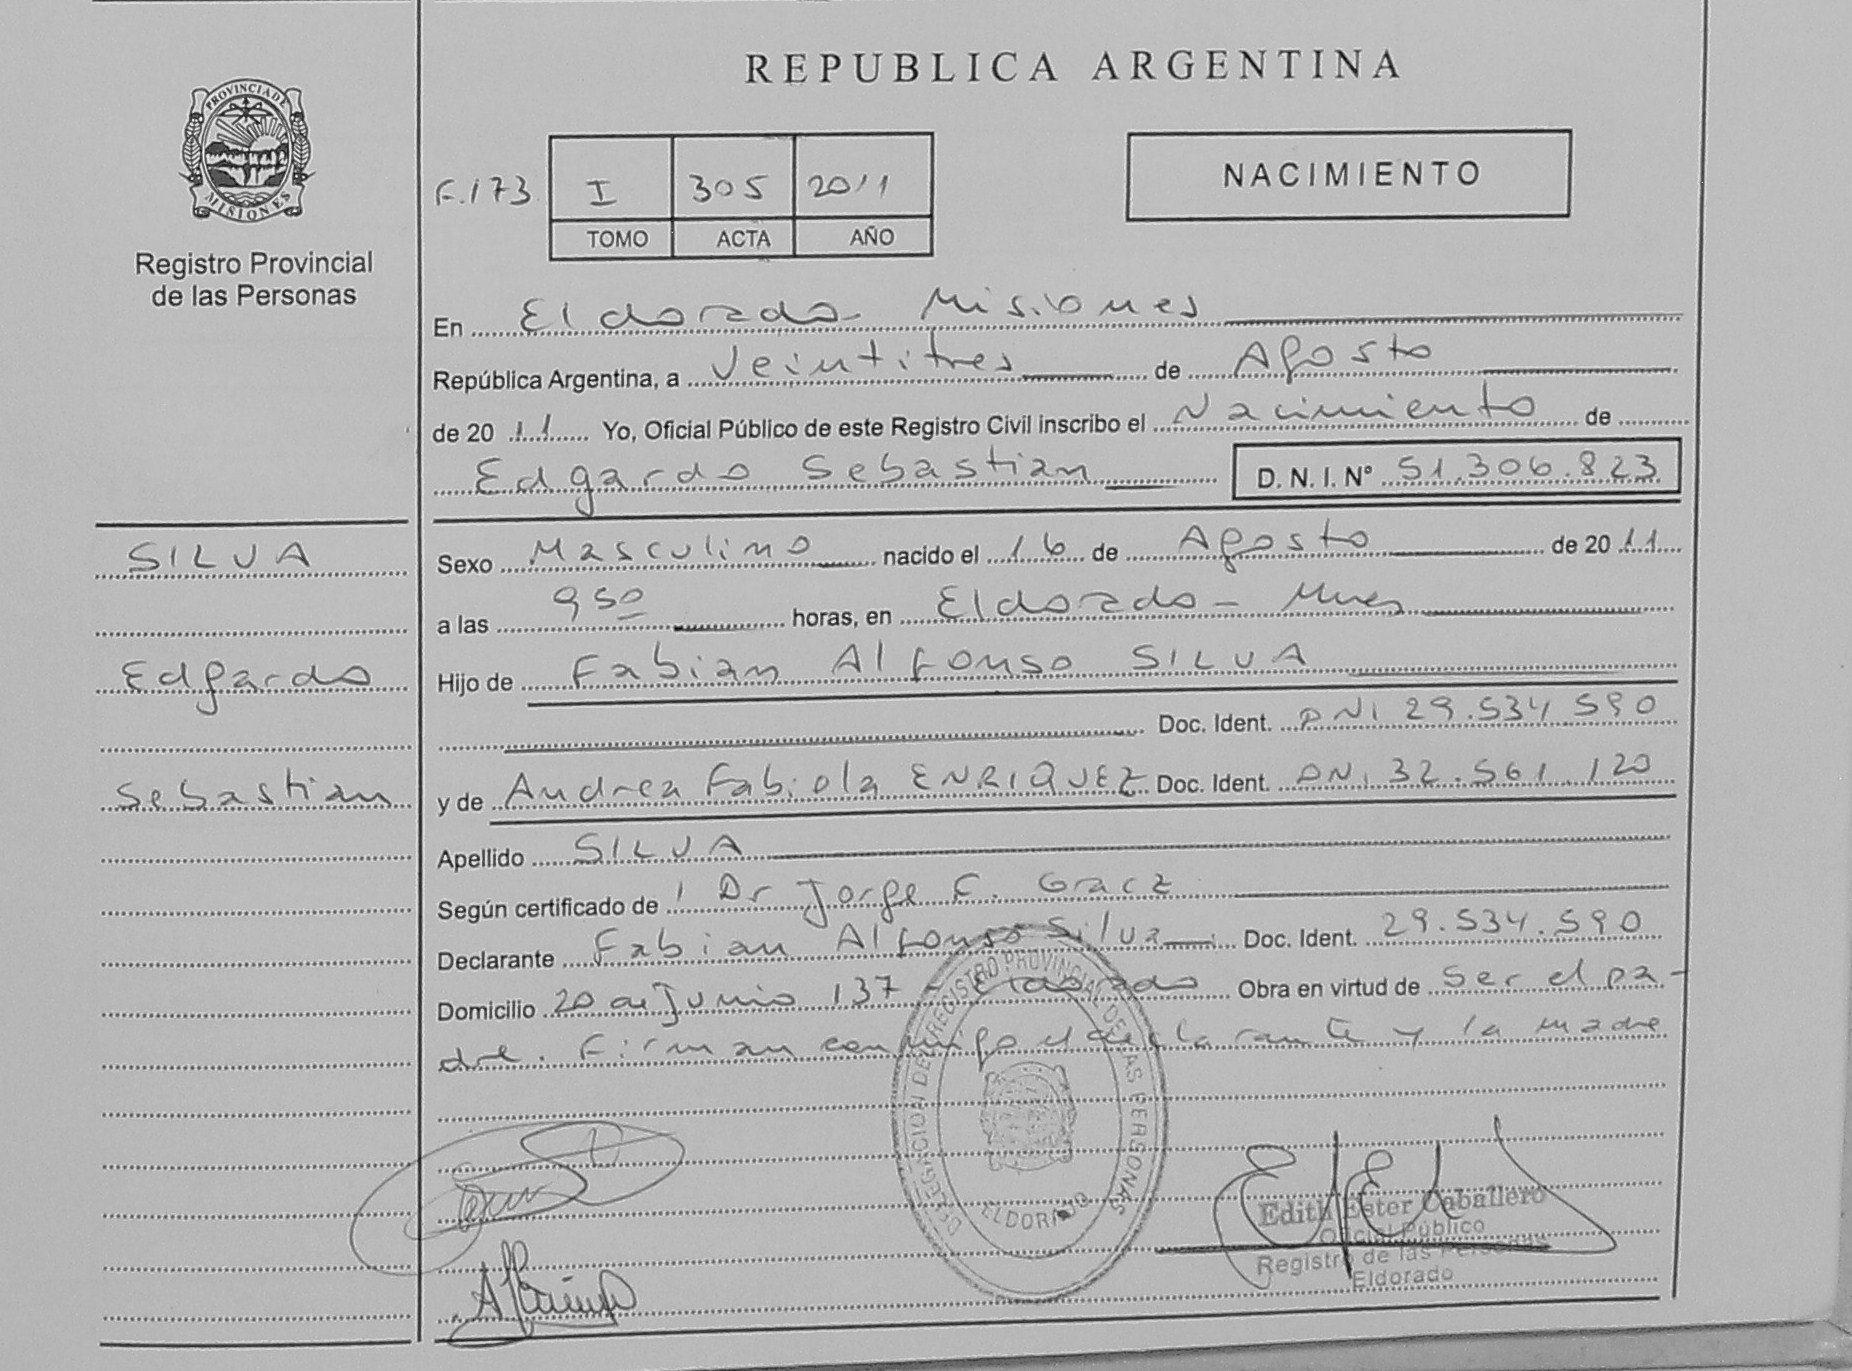 REPUBLICA ARGENTINA
PROVINCIA DE MISIONES
Registro Provincial
de las Personas
F.173 I 305 2011
TOMO ACTA AÑO
NACIMIENTO
En Eldorado Misiones
República Argentina, a Veintitres de Agosto
de 2011 Yo, Oficial Público de este Registro Civil inscribo el Nacimiento de
Edgardo Sebastian D. N. I. Nº 51.306.823
SILVA
Edgardo
Sebastian
Sexo Masculino nacido el 16 de Agosto de 2011
a las 9 50 horas, en Eldorado - Mnes
Hijo de Fabian Alfonso SILVA
Doc. Ident. DNI 29.534.590
y de Andrea Fabiola ENRIQUEZ Doc. Ident. DNI 32.561.120
Apellido SILVA
Según certificado de Dr Jorge F. Gracz
Declarante Fabian Alfonso Silva Doc. Ident. 29.534.590
Domicilio 20 de Junio 137 - Eldorado Obra en virtud de Ser el pa-
dre. Firman conmigo el declarante y la madre
DELEGACION DEL REGISTRO PROVINCIAL DE LAS PERSONAS
ELDORADO
Edith Ester Caballero
Oficial Público
Registro de las Personas
Eldorado